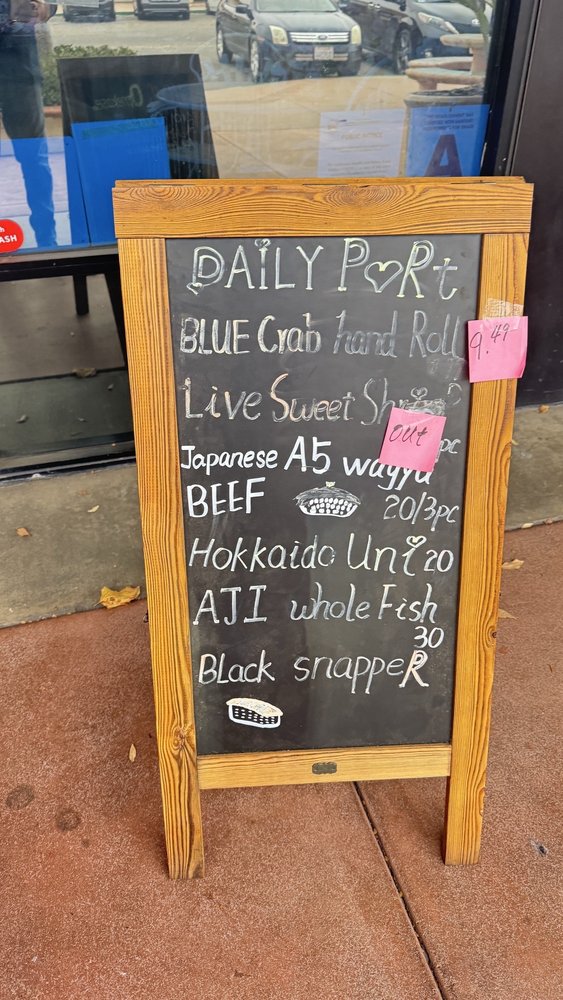 DAiLY PoRt
BLUE Crab hand Roll
9.49
Live Sweet
out
pc
Japanese A5 wagyu
BEEF 20/3pc
Hokkaido Uni 20
AJI whole Fish
30
BLack snappeR
PUBLIC NOTICE
A